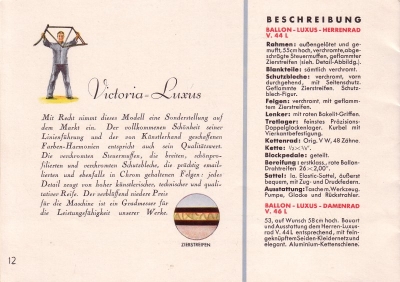 Victoria-Luxus
Mit Recht nimmt dieses Modell eine Sonderstellung auf
dem Markt ein. Der vollkommenen Schönheit seiner
Linienführung und der von Künstlerhand geschaffenen
Farben-Harmonien entspricht auch sein Qualitätswert.
Die verchromten Steuermuffen, die breiten, schönpro-
filierten und verchromten Schutzbleche, die prächtig email-
lierten und ebenfalls in Chrom gehaltenen Felgen: jedes
Detail zeugt von hoher künstlerischer, technischer und quali-
tativer Reife. Der verblüffend niedere Preis
für die Maschine ist ein Gradmesser für
die Leistungsfähigkeit unserer Werke.
ZIERSTREIFEN
12
BESCHREIBUNG
BALLON-LUXUS-HERRENRAD
V. 44 L
Rahmen: außengelötet und ge-
mufft, 55cm hoch, verchromte, abge-
schrägte Steuermuffen, geflammter
Zierstreifen (sieh. Detail-Abbildg.).
Blankteile: sämtlich verchromt.
Schutzbleche: verchromt, vorn
durchgehend, mit Seitenschutz.
Geflammte Zierstreifen. Schutz-
blech-Figur.
Felgen: verchromt, mit geflamm-
tem Zierstreifen.
Lenker: mit roten Bakelit-Griffen.
Tretlager: feinstes Präzisions-
Doppelglockenlager. Kurbel mit
Vierkantbefestigung.
Kettenrad: Orig. V W, 48 Zähne.
Kette: ½×⅛".
Blockpedale: geteilt.
Bereifung: erstklass., rote Ballon-
Drahtreifen 26×2,00".
Sattel: la. Elastic-Sattel, äußerst
bequem, mit Zug- und Druckfedern.
Ausstattung: Taschem.Werkzeug,
Pumpe, Glocke und Rückstrahler.
BALLON-LUXUS-DAMENRAD
V. 46 L
53, auf Wunsch 58cm hoch. Bauart
und Ausstattung dem Herren-Luxus-
rad V. 44 L entsprechend, mit fein-
geknüpftem Seiden-Kleidernetz und
elegant. Aluminium-Kettenschiene.